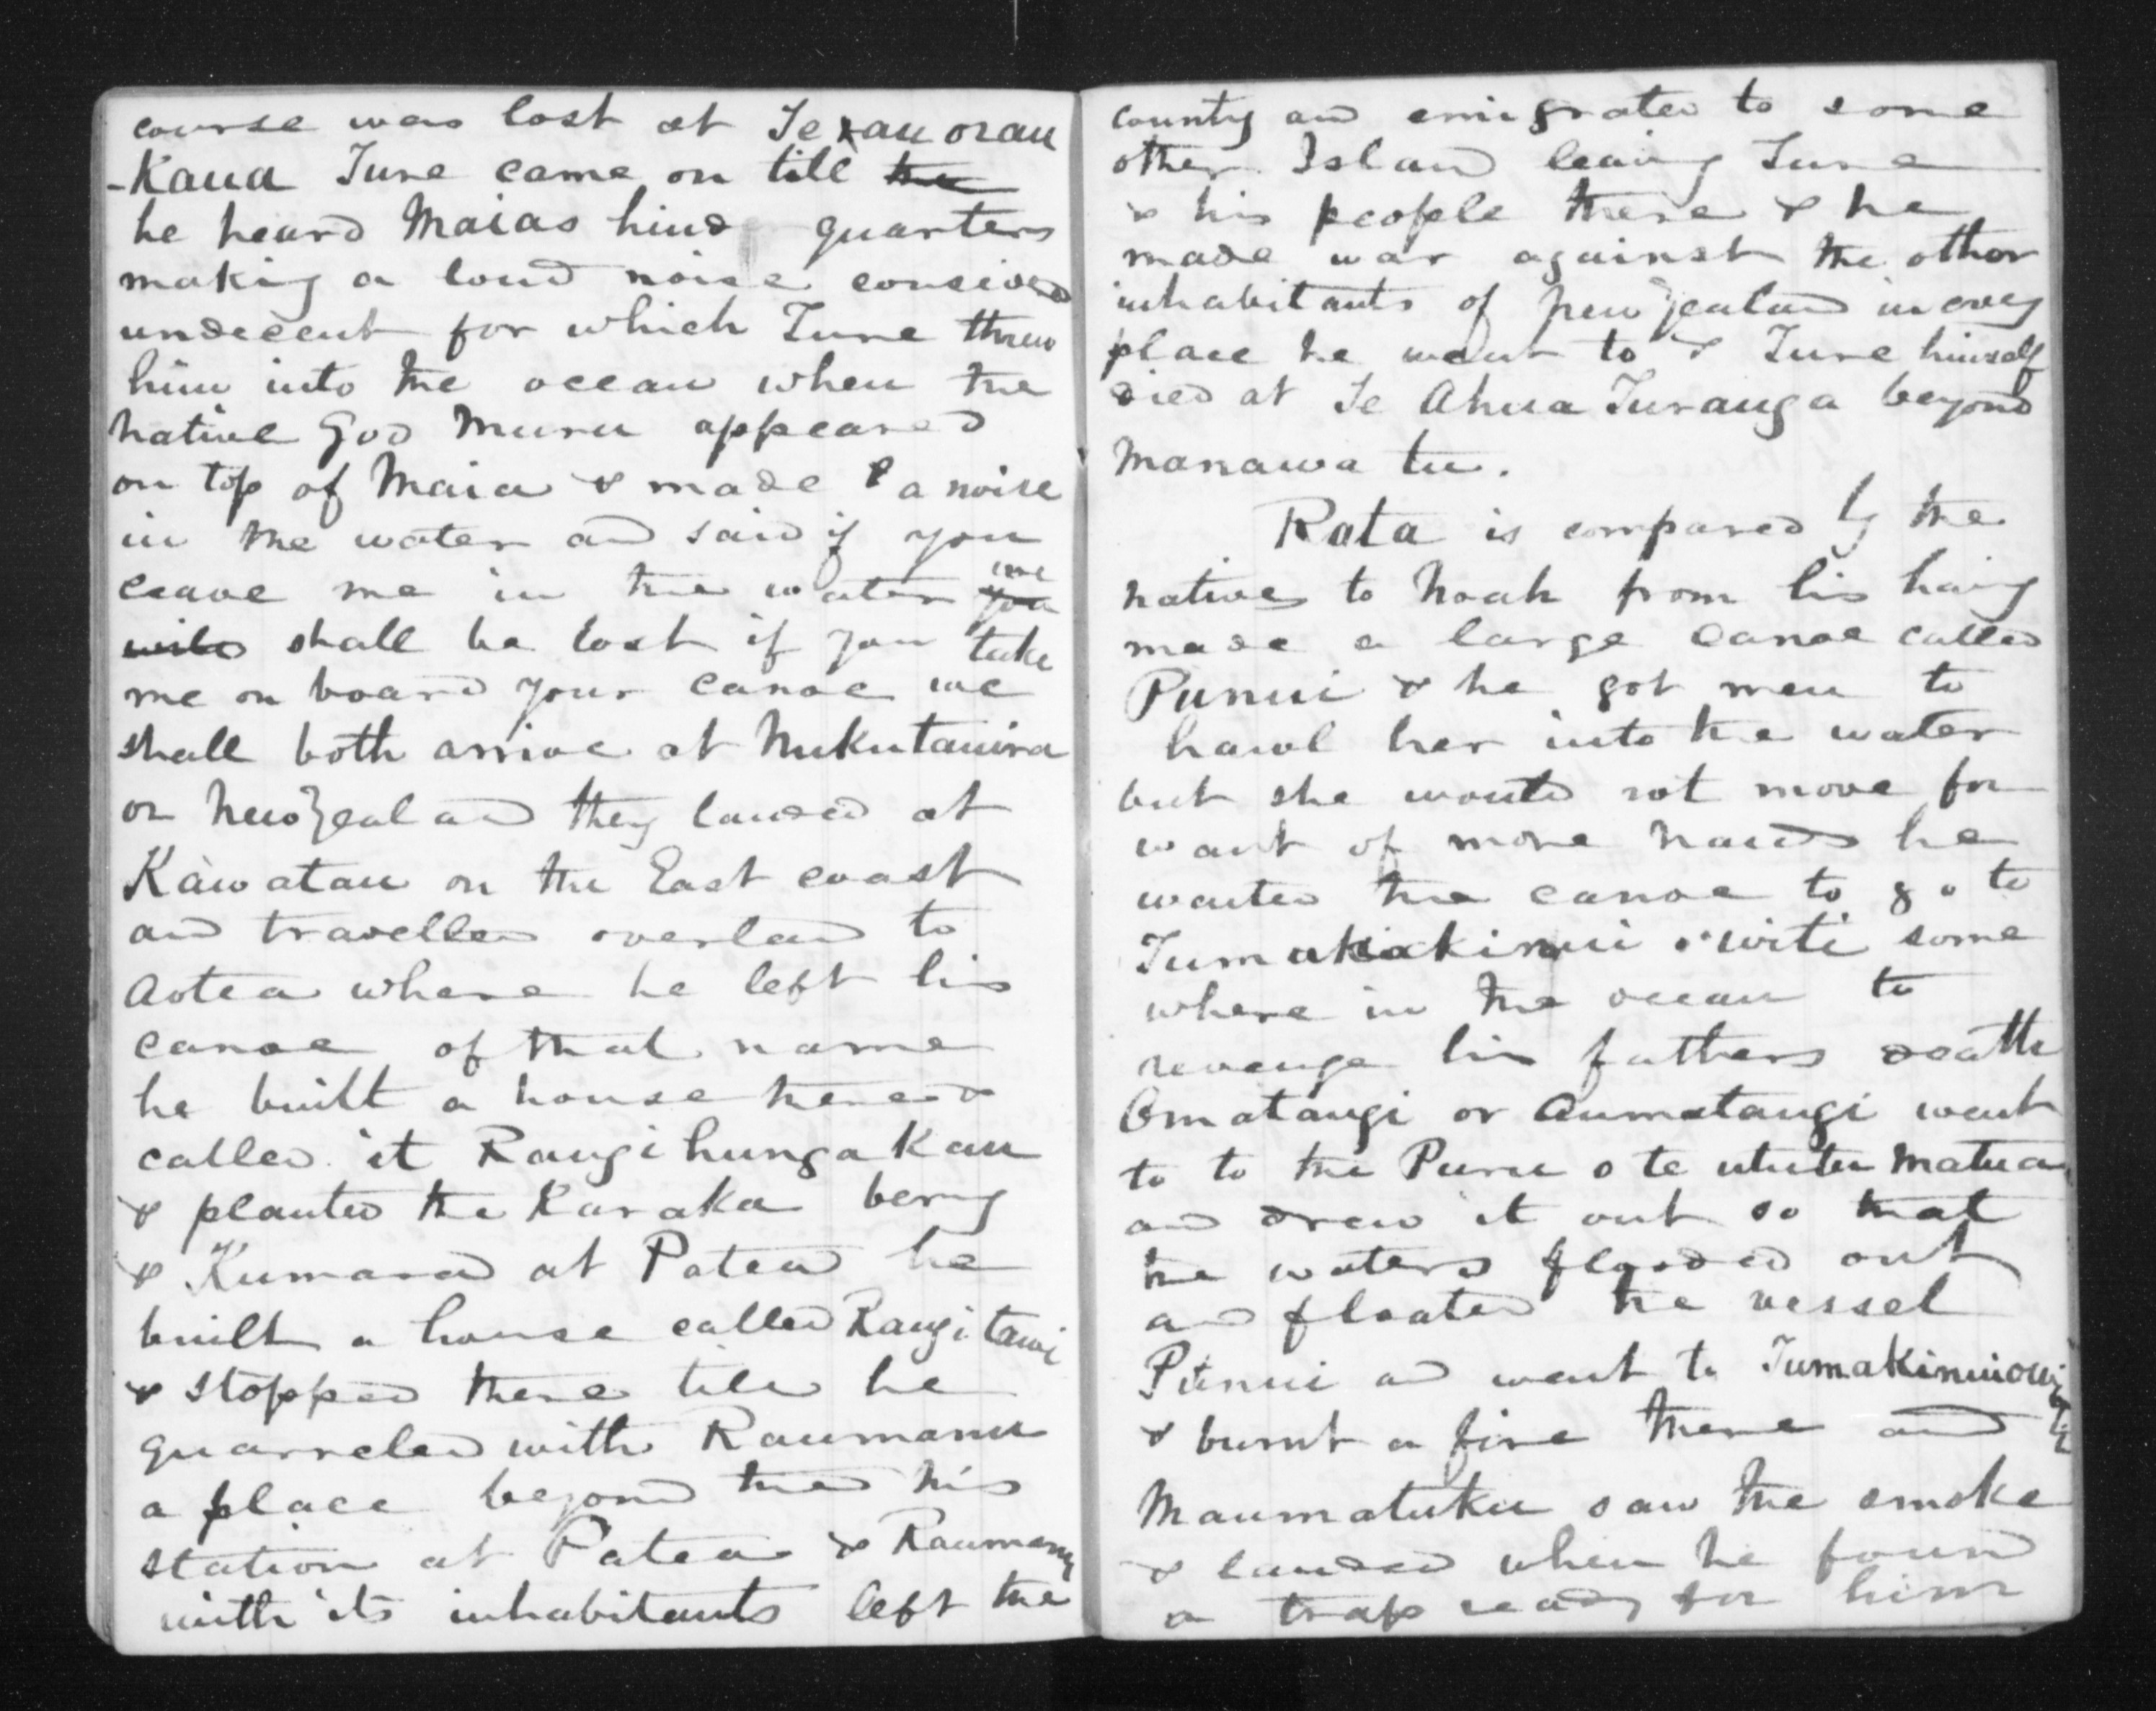 course was lost at Te rau orau
-Kaua Ture came on till the
he heard Maias hind quarters
making a loud noise consived
undecent for which Ture threw
him into the ocean when the
native God Muru appeared
on top of Maia & made a noise
in the water and said if you
leave me in the water you we
will shall be lost if you take
me on board your canoe we
shall both arrive at Nukutauira
or New Zealand they landed at
Kawatau on the East coast
and travelled overland to
Aotea where he left his
canoe of that name
he built a house here &
called it Rangihungakau
& planted the Karaka berry
& Kumara at Patea he
built a house called Rangitawi
& stopped there till he
quarreled with Raumanu
a place beyond the his
station at Patea & Raumanu
with its inhabitants left the
county and emigrated to some
other Island leaving Ture
& his people there & he
made war against the other
inhabitants of new Zealand in every
place he went to & Ture himself
died at Te Ahua Turanga beyond
Manawa tu.
Rata is compared by the
natives to Noah from his having
made a large canoe called
Punui & he got men to
hawl her into the water
but she would not move for
want of more hands he
wanted the canoe to go to
Tumakiakinui o witi some
where in the ocean to
revenge his fathers death
Omatangi or Aumatangi went
to to the Puru o te ututu Matua
and drew it out so that
the waters flooded out
and floated the vessel
Punui and went to Tumakinuiowiti
& burnt a fire there and
Maumatuku saw the smoke
& landed when he found
a trap ready for him